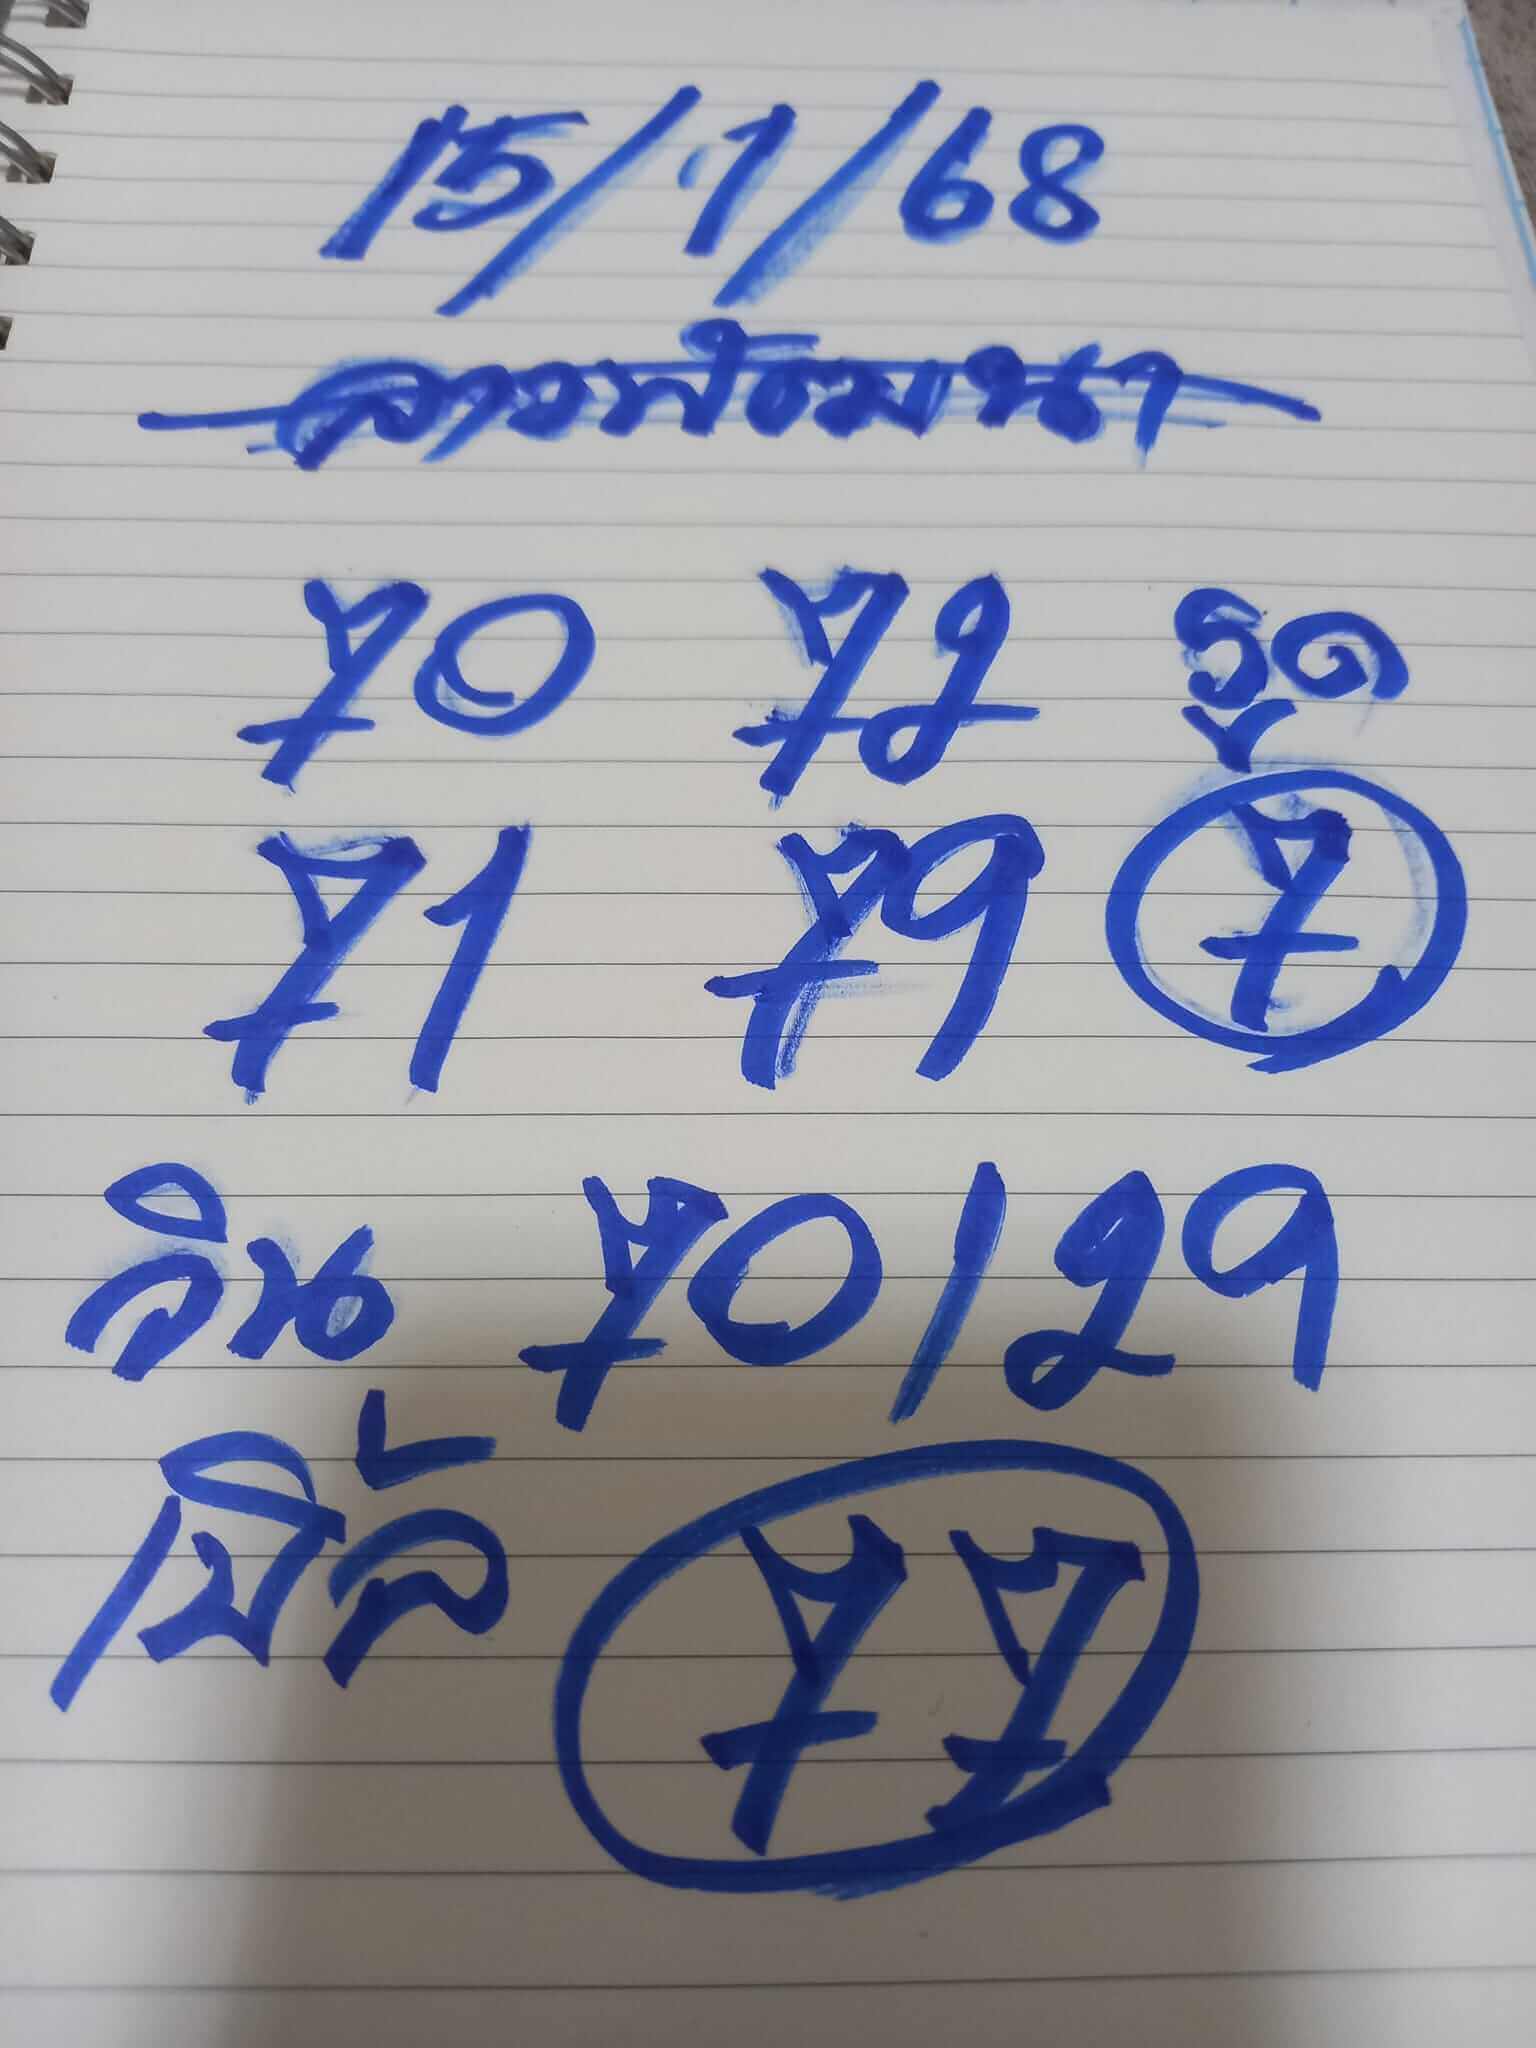 15/1/68
ลาวพัฒนา
70 72 รูด
71 79 7
วิน 70129
เบิ้ล 77